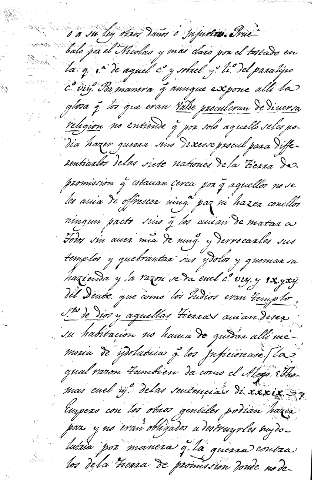 o a su ley otros daños o Injustos. Prue
balo por el Nicolao y mas claro por el tostado en
la q. 1ª de aquel c° y sobre el q° li° del paralipo
c° viij. Por manera q aunque expone alli la
glosa q los que eran Valde procul eran de diversa
religion no entiende q por solo aquello se les po
dia hazer guerra sino dixese procul para diffe
rentiarlos de las siete nationes de la tierra de
promission q estavan cerca por q aquellos no se
les avia de offrescer ning° paz ni hazer con ellos
ningun pacto sino q los avian de matar a
todos sin aver mia de ning° y derrocarles sus
templos y quebrantar sus ydolos y quemar su
hazienda y la razon se da en el c° viij y
del Deute. que como los Judios eran templo
Sto de dios y aquellas tierras avian de ser
su habitacion no havia de quedar alli me
moria de ydolatrias q los Inficionase, la
qual razon tambien da como el Alex° y Tho
mas en el iij° de las sentencias di xxxix
Empero con los otros gentiles podian hazer
paz y no eran obligados a destruyrles su ydo
latria por manera q la guerra contra
los de la tierra de promission donde no de